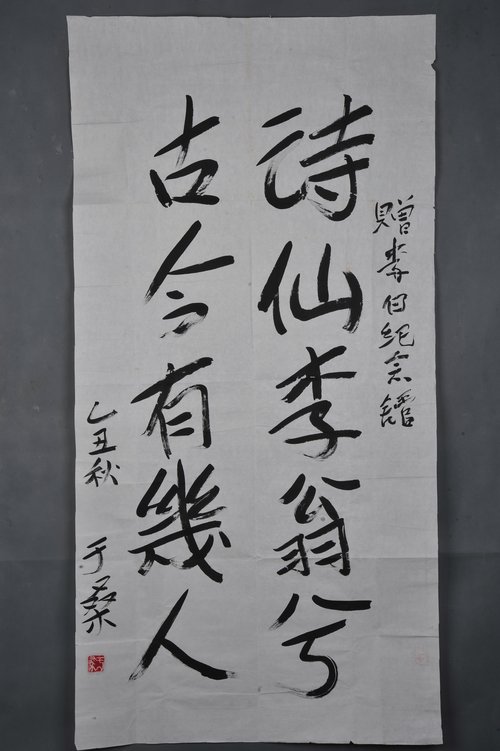 贈李白紀念館
诗仙李翁兮
古今有幾人
乙丑秋 于桑